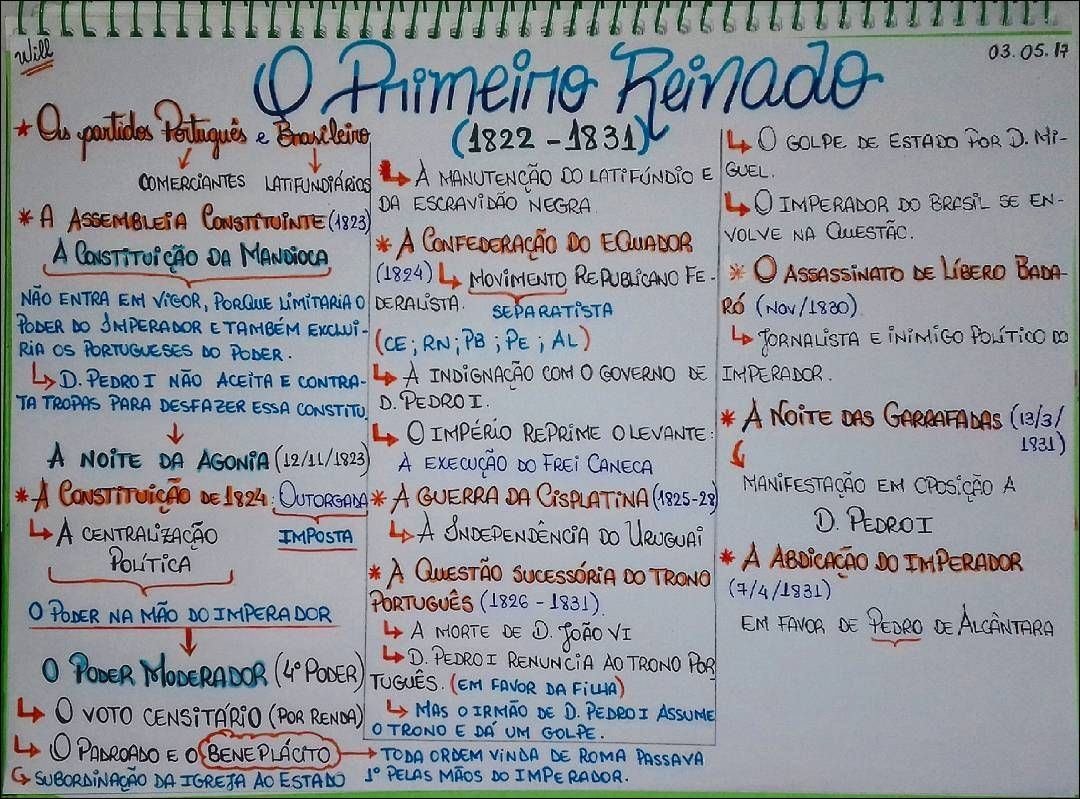 Will
03.05.17
O Primeiro Reinado
(1822 - 1831)
* Os partidos Português e Brasileiro
COMERCIANTES LATIFUNDIÁRIOS
* A ASSEMBLEIA CONSTITUINTE (1823)
A CONSTITUIÇÃO DA MANDIOCA
NÃO ENTRA EM VIGOR, PORQUE LIMITARIA O
PODER DO IMPERADOR E TAMBÉM EXCLUI-
RIA OS PORTUGUESES DO PODER.
↳ D. PEDRO I NÃO ACEITA E CONTRA-
TA TROPAS PARA DESFAZER ESSA CONSTITU.
↓
A NOITE DA AGONIA (12/11/1823)
* A CONSTITUIÇÃO DE 1824: OUTORGADA
IMPOSTA
↳ A CENTRALIZAÇÃO
POLÍTICA
O PODER NA MÃO DO IMPERADOR
↓
O PODER MODERADOR (4º PODER)
↳ O VOTO CENSITÁRIO (POR RENDA)
↳ O PADROADO E O BENEPLÁCITO → TODA ORDEM VINDA DE ROMA PASSAVA
1º PELAS MÃOS DO IMPERADOR.
↳ SUBORDINAÇÃO DA IGREJA AO ESTADO
↳ A MANUTENÇÃO DO LATIFÚNDIO E
DA ESCRAVIDÃO NEGRA
* A CONFEDERAÇÃO DO EQUADOR
(1824) ↳ MOVIMENTO REPUBLICANO FE-
DERALISTA. SEPARATISTA
(CE; RN; PB; PE; AL)
↳ A INDIGNAÇÃO COM O GOVERNO DE
D. PEDRO I.
↳ O IMPÉRIO REPRIME O LEVANTE:
A EXECUÇÃO DO FREI CANECA
* A GUERRA DA CISPLATINA (1825-28)
↳ A INDEPENDÊNCIA DO URUGUAI
* A QUESTÃO SUCESSÓRIA DO TRONO
PORTUGUÊS (1826 - 1831)
↳ A MORTE DE D. JOÃO VI
↳ D. PEDRO I RENUNCIA AO TRONO POR
TUGUÊS. (EM FAVOR DA FILHA)
↳ MAS O IRMÃO DE D. PEDRO I ASSUME
O TRONO E DÁ UM GOLPE.
↳ O GOLPE DE ESTADO POR D. MI-
GUEL.
↳ O IMPERADOR DO BRASIL SE EN-
VOLVE NA QUESTÃO.
* O ASSASSINATO DE LÍBERO BADA-
RÓ (NOV/1830)
↳ JORNALISTA E INIMIGO POLÍTICO DO
IMPERADOR.
* A NOITE DAS GARRAFADAS (13/3/
1831)
MANIFESTAÇÃO EM OPOSIÇÃO A
D. PEDRO I
* A ABDICAÇÃO DO IMPERADOR
(7/4/1831)
EM FAVOR DE PEDRO DE ALCÂNTARA